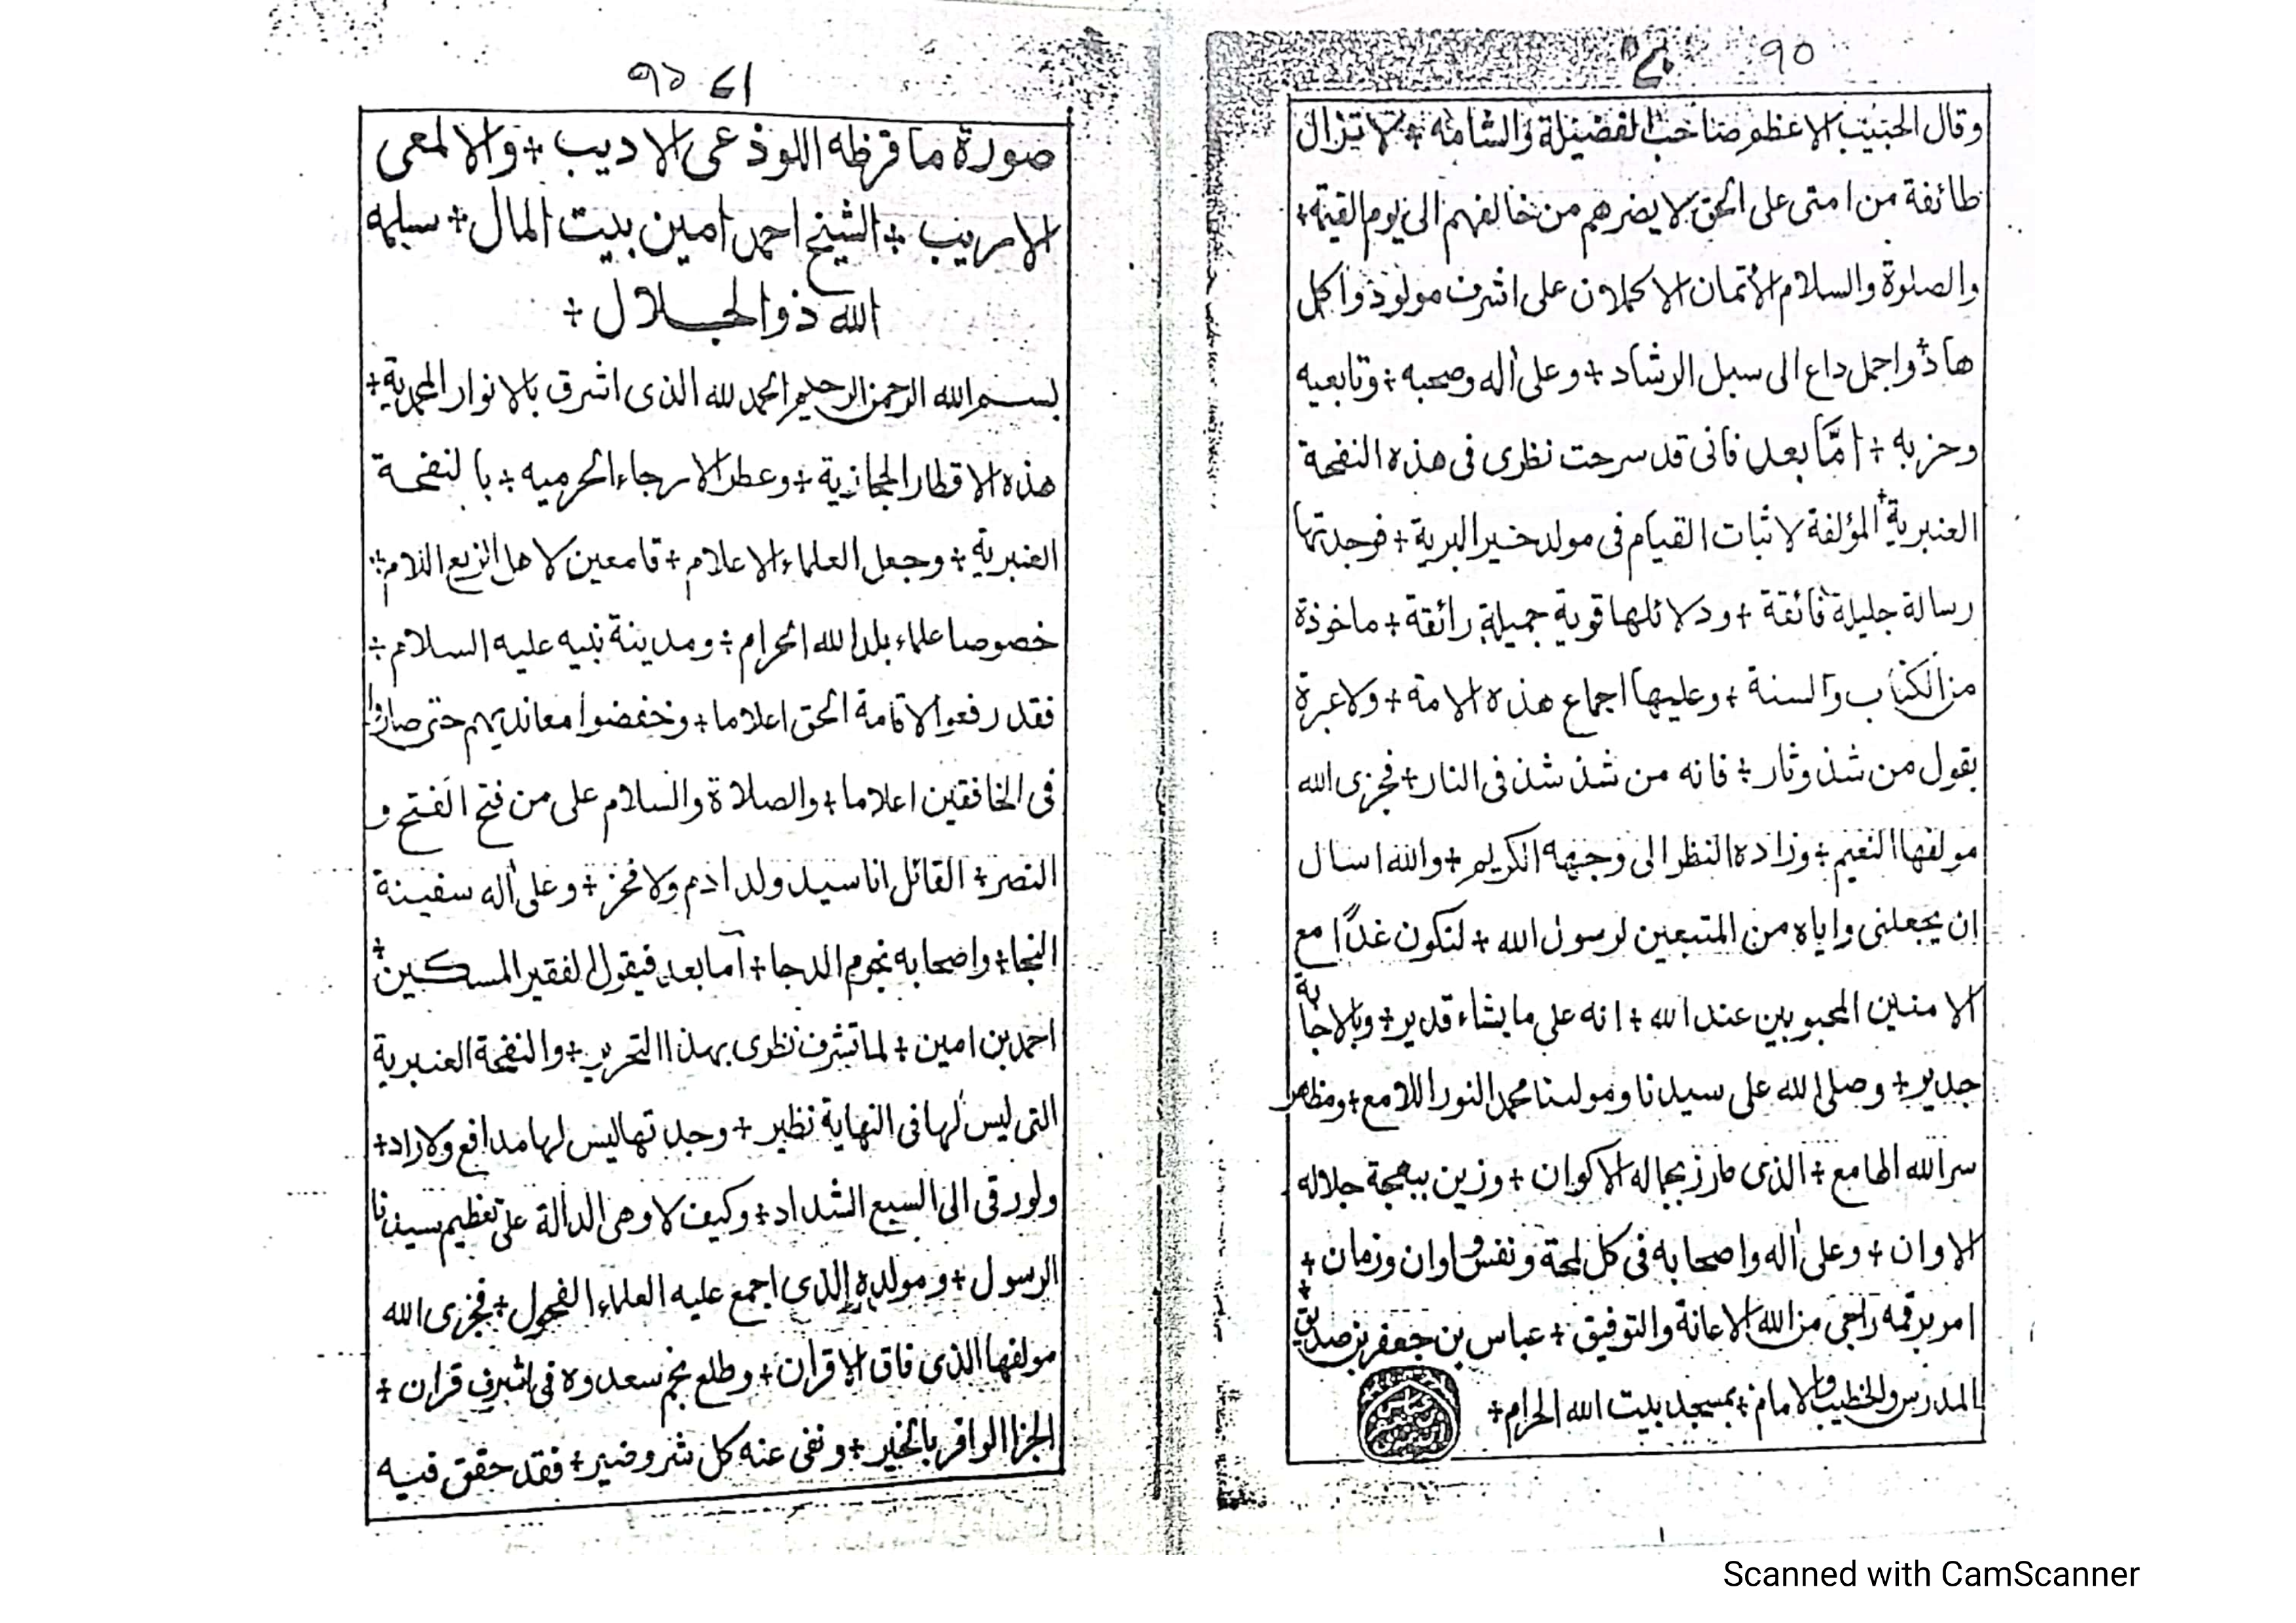 ٩٥
وقال الحبيب الاعظم صاحب الفضيلة والشامه + لا تزال
طائفة من امتى على الحق لا يضرهم من خالفهم الى يوم القيمة +
والصلوة والسلام الأتمان الاكملان على اشرف مولود واكمل
هاد + واجمل داع الى سبل الرشاد + وعلى أله وصحبه + وتابعيه
وحزبه + امَّا بعد فانى قد سرحت نظرى فى هذه النفحة
العنبرية + المؤلفة لاثبات القيام فى مولد خير البرية + فوجدتها
رسالة جليلة فائقة + ودلائلها قوية جميلة رائقة + ماخوذة
من الكتاب والسنة + وعليها اجماع هذه الامة + ولا عبرة
بقول من شذ وثار + فانه من شذ شذ فى النار + فجزى الله
مولفها النعيم + وزاده النظر الى وجهه الكريم + والله اسال
ان يجعلنى واياه من المتبعين لرسول الله + لنكون غدًا مع
الامنين المحبوبين عند الله + انه على ما يشاء قدير + وبالاجابة
جدير + وصلى الله على سيدنا ومولينا محمد النور اللامع + ومظهر
سر الله الهامع + الذى طرز بجماله الاكوان + وزين ببهجة جلاله
الاوان + وعلى أله واصحابه فى كل لمحة ونفس واوان وزمان +
امر برقمه راجى من الله الاعانة والتوفيق + عباس بن جعفر بن صديق +
المدرس والخطيب والامام + بمسجد بيت الله الحرام +
٩٦
صورة ما قرظه اللوذعى الاديب + والالمعى
الاريب + الشيخ احمد امين بيت المال + سلمه
الله ذو الجلال +
بسم الله الرحمن الرحيم الحمد لله الذى اشرق بالانوار المحمدية +
هذه الاقطار الحجازية + وعطر الارجاء الحرميه + بالنفحة
العنبرية + وجعل العلماء الاعلام + قامعين لاهل الزيع اللام +
خصوصا علماء بلد الله الحرام + ومدينة نبيه عليه السلام +
فقد رفعوا لاقامة الحق اعلاما + وخفضوا معانديهم حتى صاروا
فى الخافقين اعلاما + والصلاة والسلام على من فتح الفتح و
النصر + القائل انا سيد ولد ادم ولا فخر + وعلى أله سفينة
النجا + واصحابه نجوم الدجا + اما بعد فيقول الفقير المسكين +
احمد بن امين + لما تشرف نظرى بهذا التحرير + والنفحة العنبرية
التى ليس لها فى النهاية نظير + وجدتها ليس لها مدافع ولا راد +
ولو رقى الى السبع الشداد + وكيف لا وهى الدالة على تعظيم سيدنا
الرسول + ومولده الذى اجمع عليه العلماء الفحول + فجزى الله
مولفها الذى فاق الاقران + وطلع نجم سعدوه فى اشرف قران +
الجزا الوافر بالخير + ونفى عنه كل شر وضير + فقد حقق فيه
Scanned with CamScanner